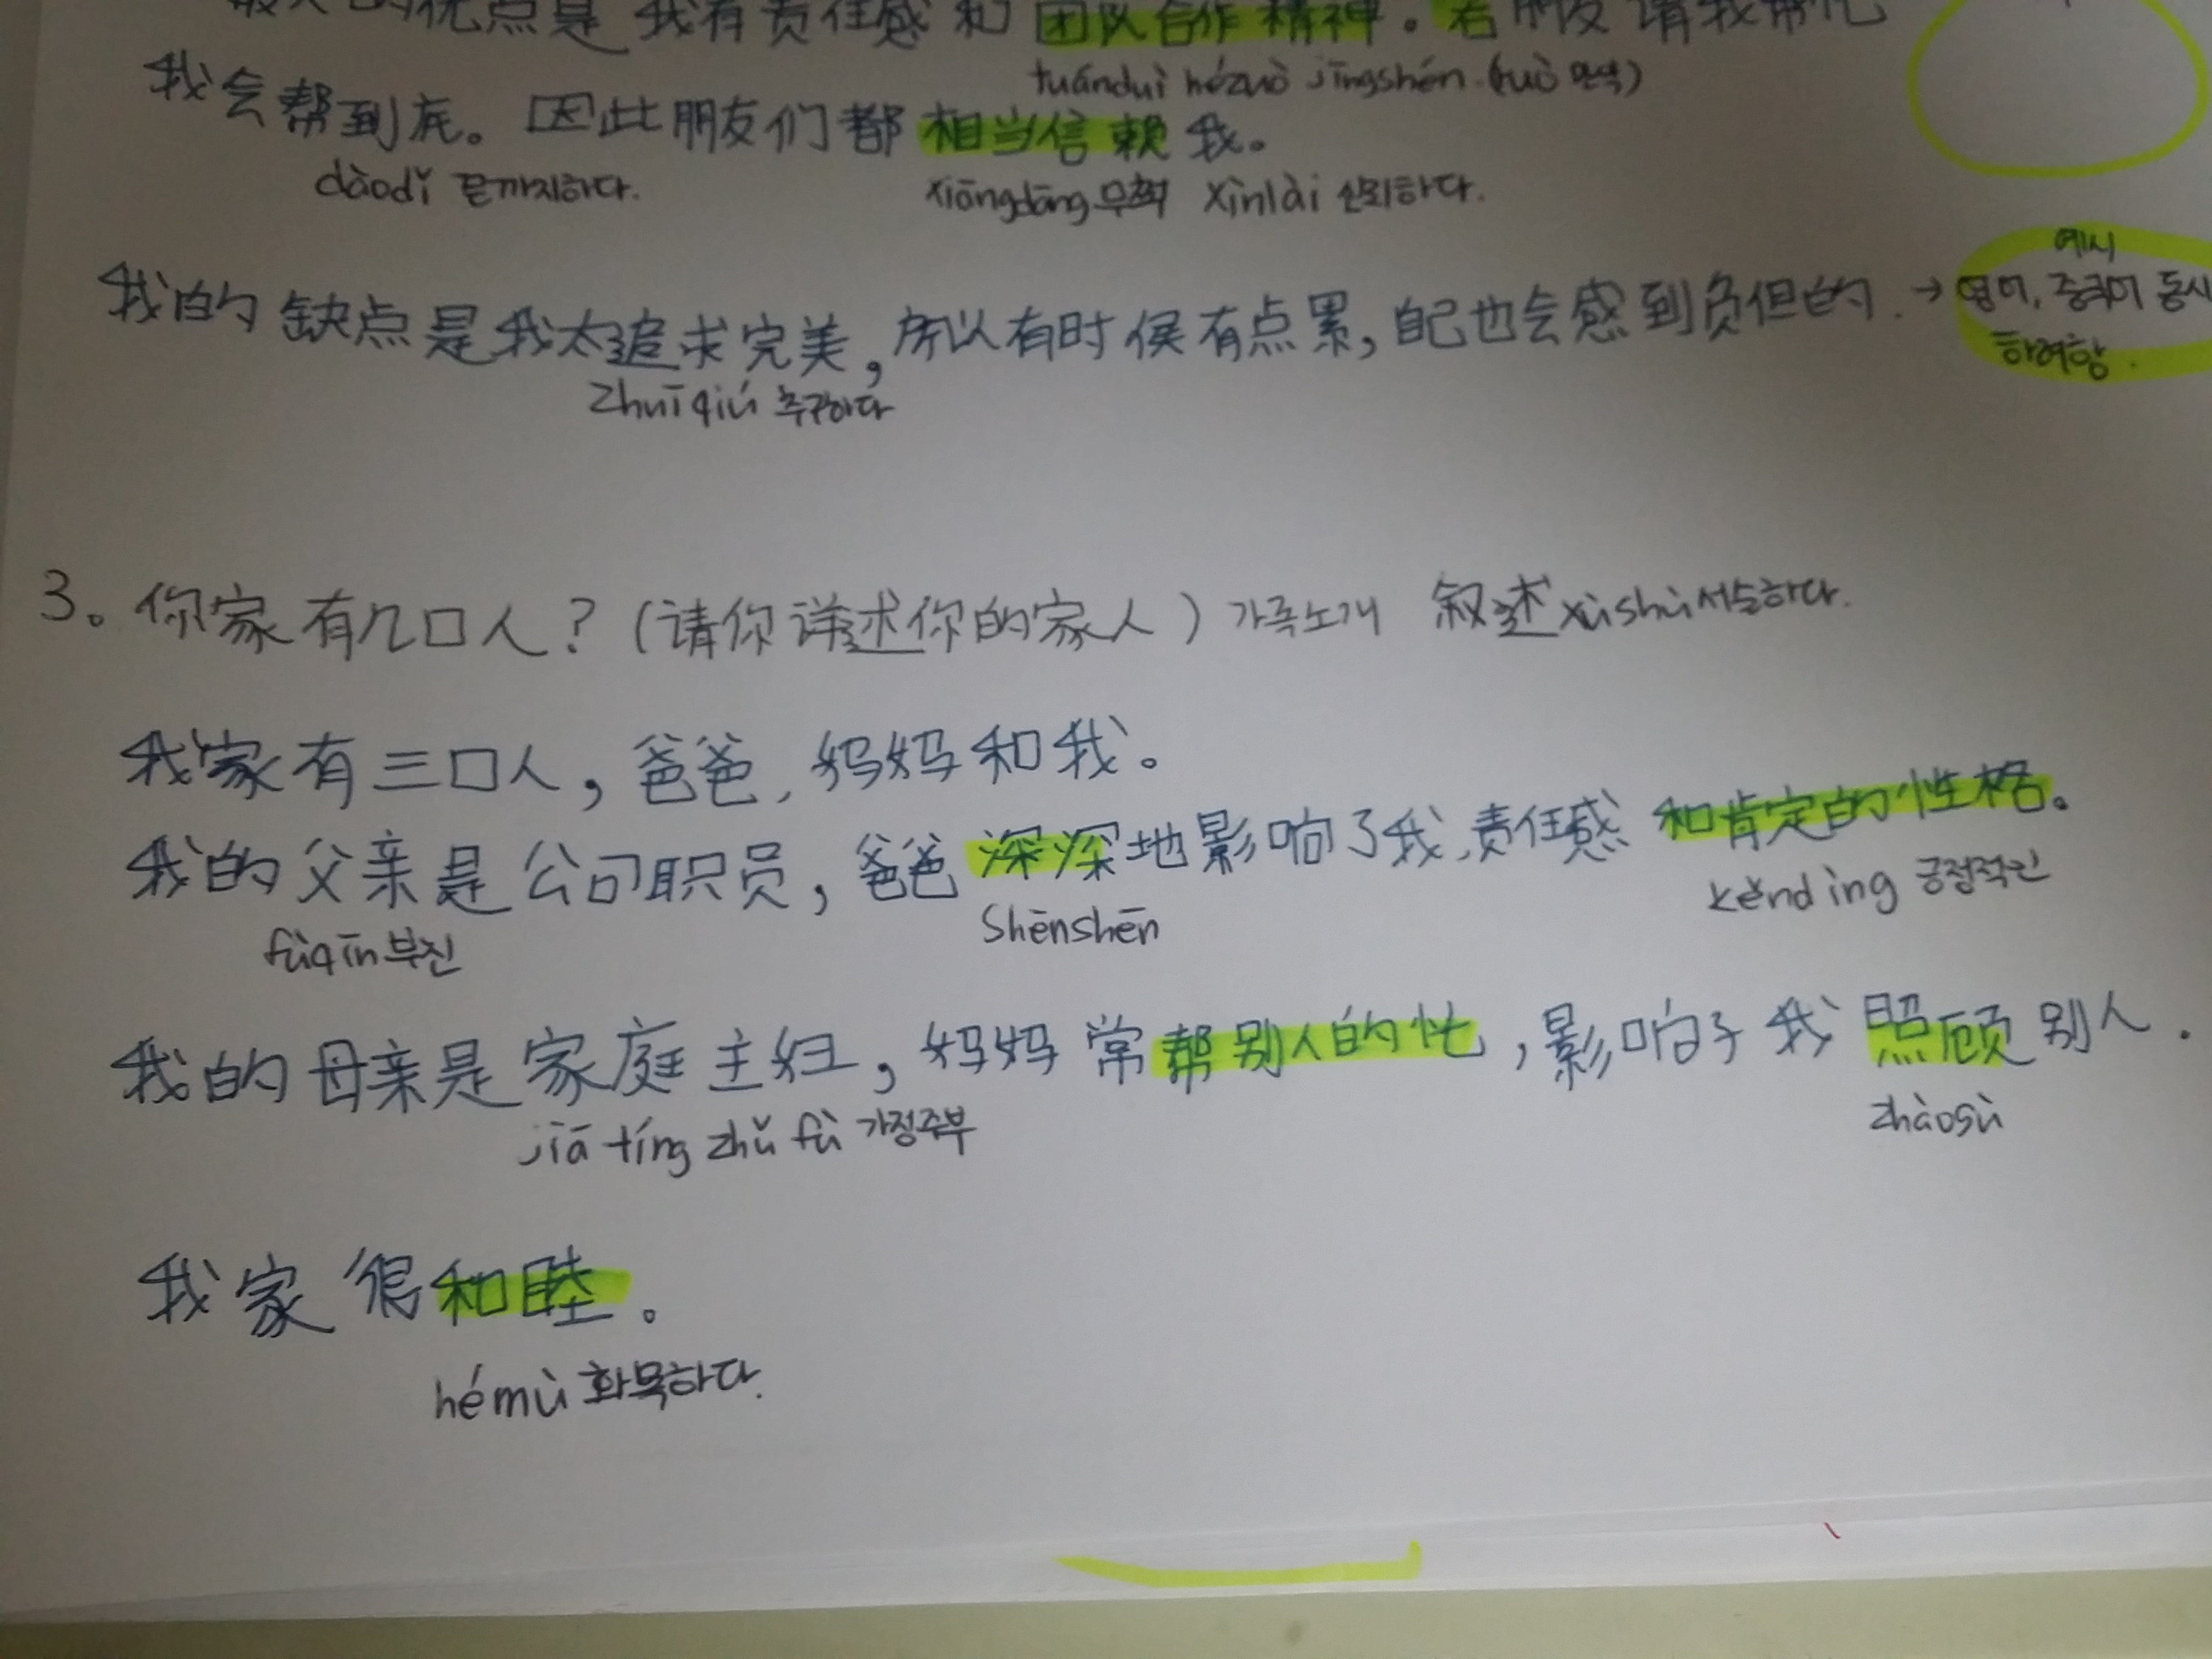 的优点是 我有责任感 和 团队合作精神。若朋友请我帮忙
tuánduì hézuò jīngshén (ruò 만약)
我会帮到底。因此朋友们都相当信赖我。
dàodǐ 끝까지하다. xiāngdāng 무척 xìnlài 신뢰하다.
예시
我的缺点是我太追求完美，所以有时侯有点累，自己也会感到负但的. → 영어, 중국어 동시
하려함.
zhuīqiú 추구하다
3。你家有几口人？（请你详述你的家人）가족소개 叙述 xùshù 서술하다.
我家有三口人，爸爸，妈妈和我。
我的父亲是公司职员，爸爸深深地影响了我，责任感和肯定的性格。
fùqīn 부친 shēnshēn kěndìng 긍정적인
我的母亲是家庭主妇，妈妈常帮别人的忙，影响了我照顾别人.
jiā tíng zhǔ fù 가정주부 zhàogù
我家很和睦。
hémù 화목하다.